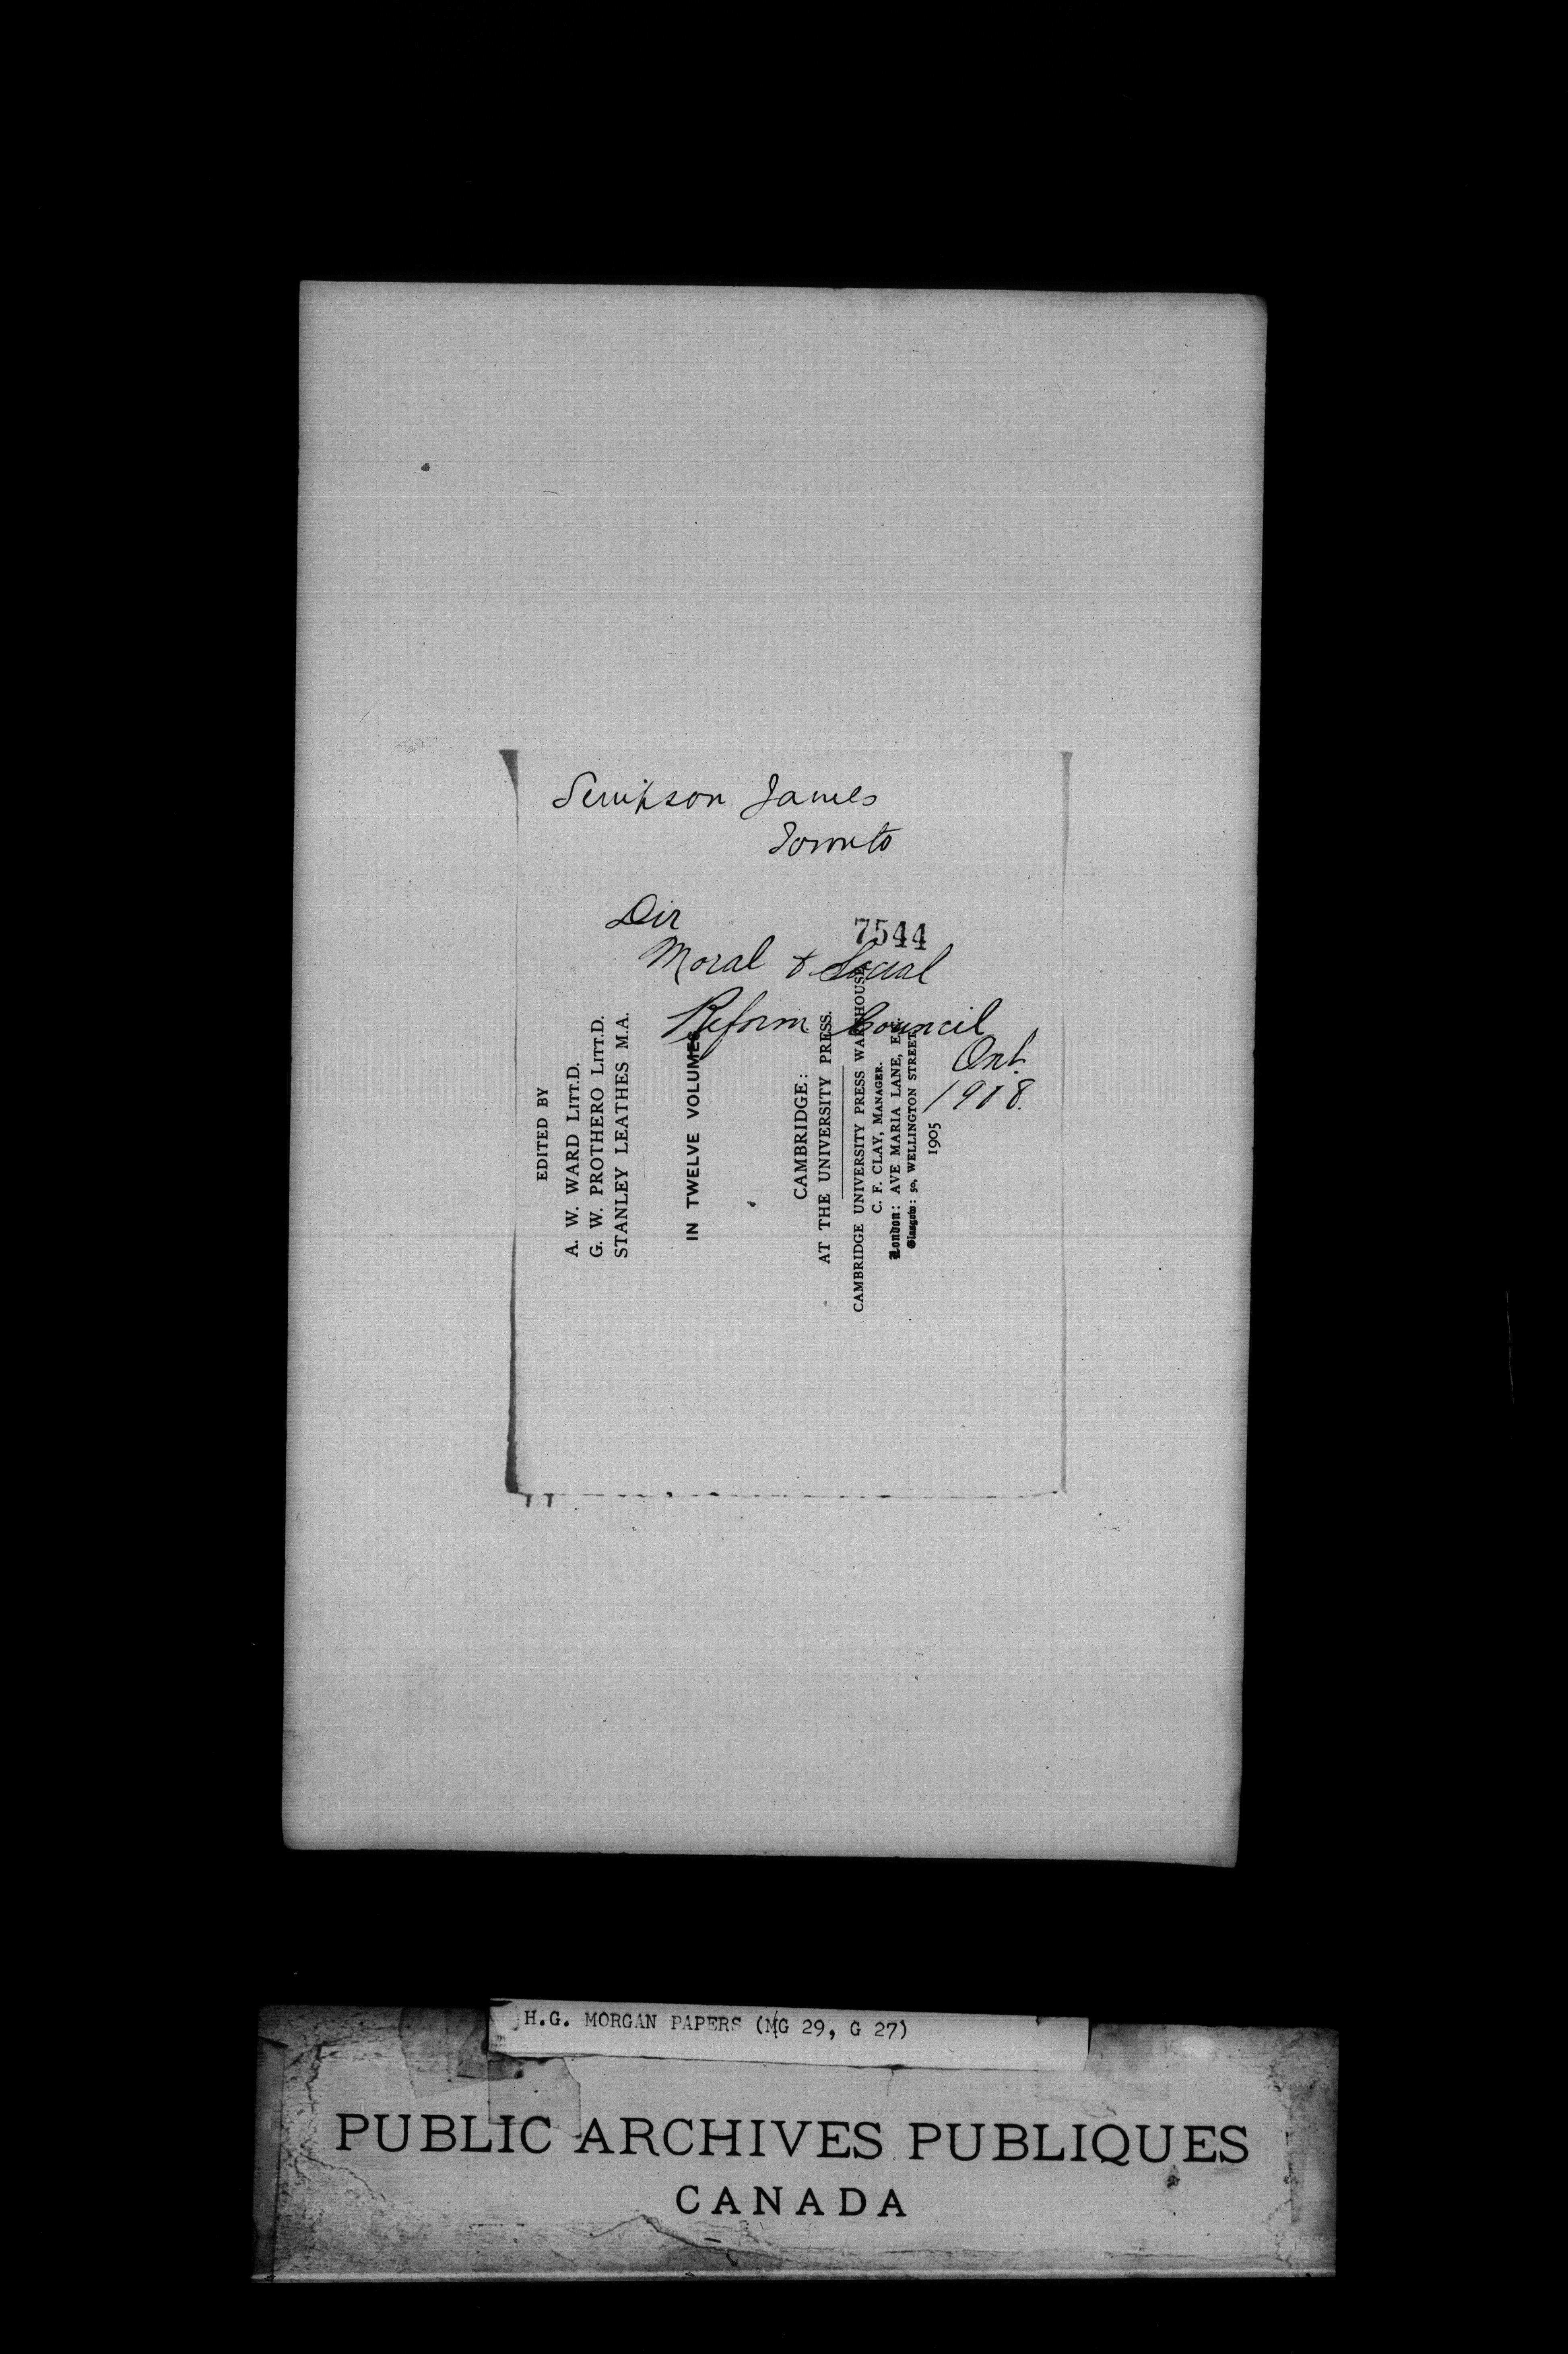 Simpson James
Toronto
Dir
7544
Moral & Social
Reform Council
Ont.
1908.
EDITED BY
A. W. WARD LITT.D.
G. W. PROTHERO LITT.D.
STANLEY LEATHES M.A.
IN TWELVE VOLUMES
CAMBRIDGE:
AT THE UNIVERSITY PRESS.
CAMBRIDGE UNIVERSITY PRESS WAREHOUSE,
C. F. CLAY, MANAGER.
London: AVE MARIA LANE, E.C.
Glasgow: 50, WELLINGTON STREET.
1905
H.G. MORGAN PAPERS (MG 29, G 27)
PUBLIC ARCHIVES PUBLIQUES
CANADA